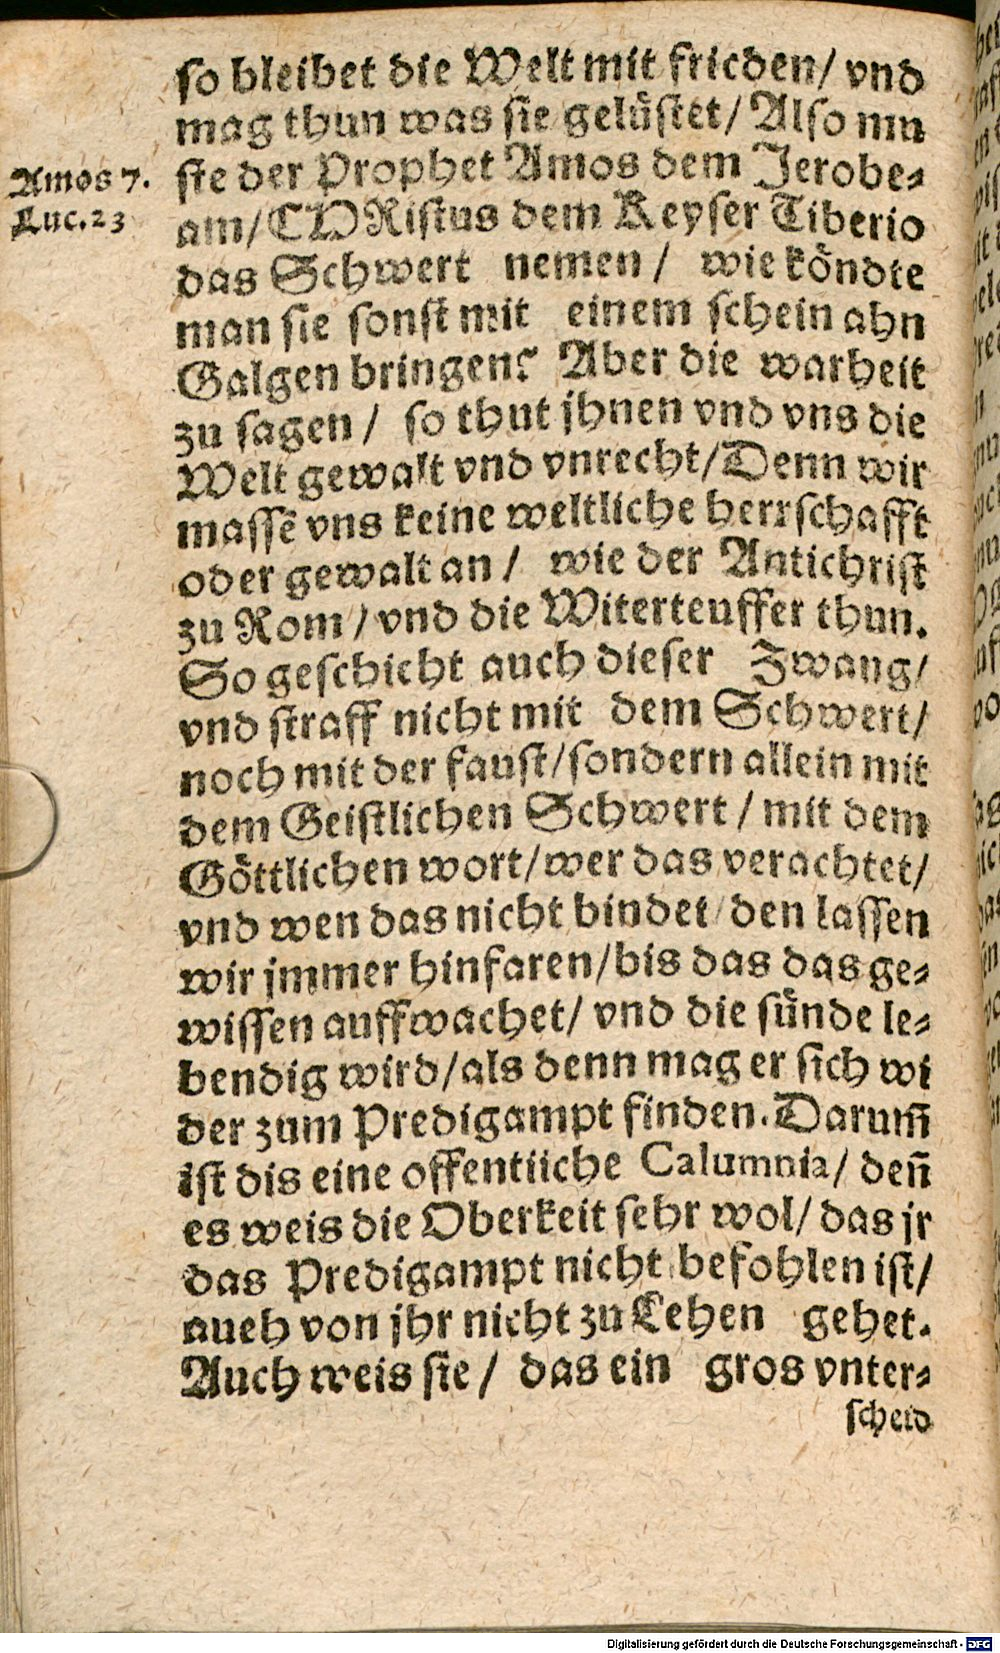 so bleibet die Welt mit fricden/ vnd
mag thun was sie gelüstet/ Also mu
Amos 7.
ste der Prophet Amos dem Jerobe-
Luc.23
am/ CHRistus dem Keyser Tiberio
das Schwert nemen/ wie köndte
man sie sonst mit einem schein ahn
Galgen bringen? Aber die warheit
zu sagen/ so thut jhnen vnd vns die
Welt gewalt vnd vnrecht/ Denn wir
massẽ vns keine weltliche herrschafft
oder gewalt an/ wie der Antichrist
zu Rom/ vnd die Witerteuffer thun.
So geschicht auch dieser Zwang/
vnd straff nicht mit dem Schwert/
noch mit der faust/ sondern allein mit
dem Geistlichen Schwert/ mit dem
Göttlichen wort/ wer das verachtet/
vnd wen das nicht bindet/ den lassen
wir jmmer hinfaren/ bis das das ge-
wissen auffwachet/ vnd die sünde le-
bendig wird/ als denn mag er sich wi
der zum Predigampt finden. Darum̃
ist dis eine offentliche Calumnia/ deñ
es weis die Oberkeit sehr wol/ das jr
das Predigampt nicht befohlen ist/
aueh von jhr nicht zu Lehen gehet.
Auch weis sie/ das ein gros vnter-
scheid
Digitalisierung gefördert durch die Deutsche Forschungsgemeinschaft - DFG